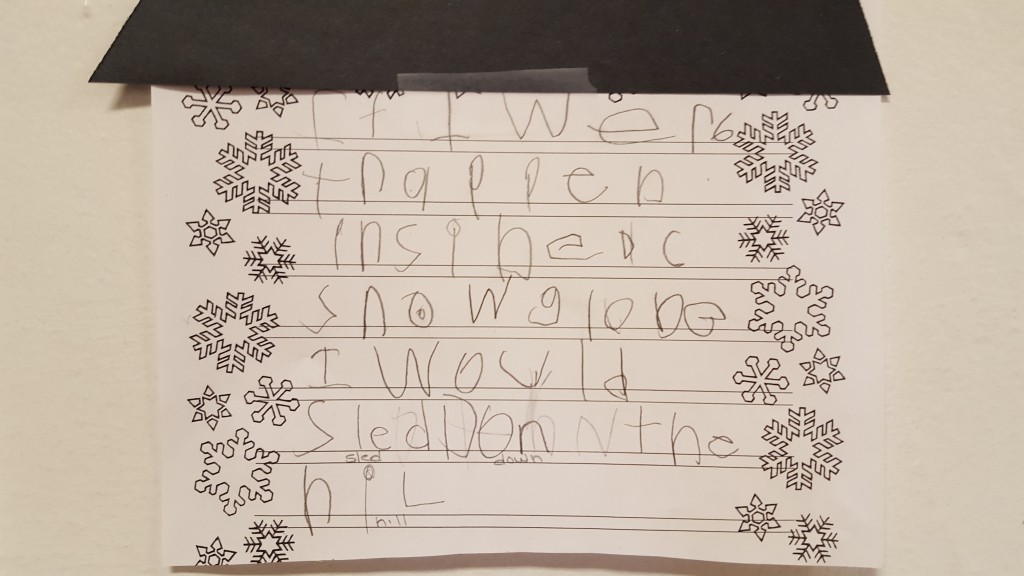 If I were
thappen
insihe ac
snowglobe
I would
sled Down the
sled down
hil
hill